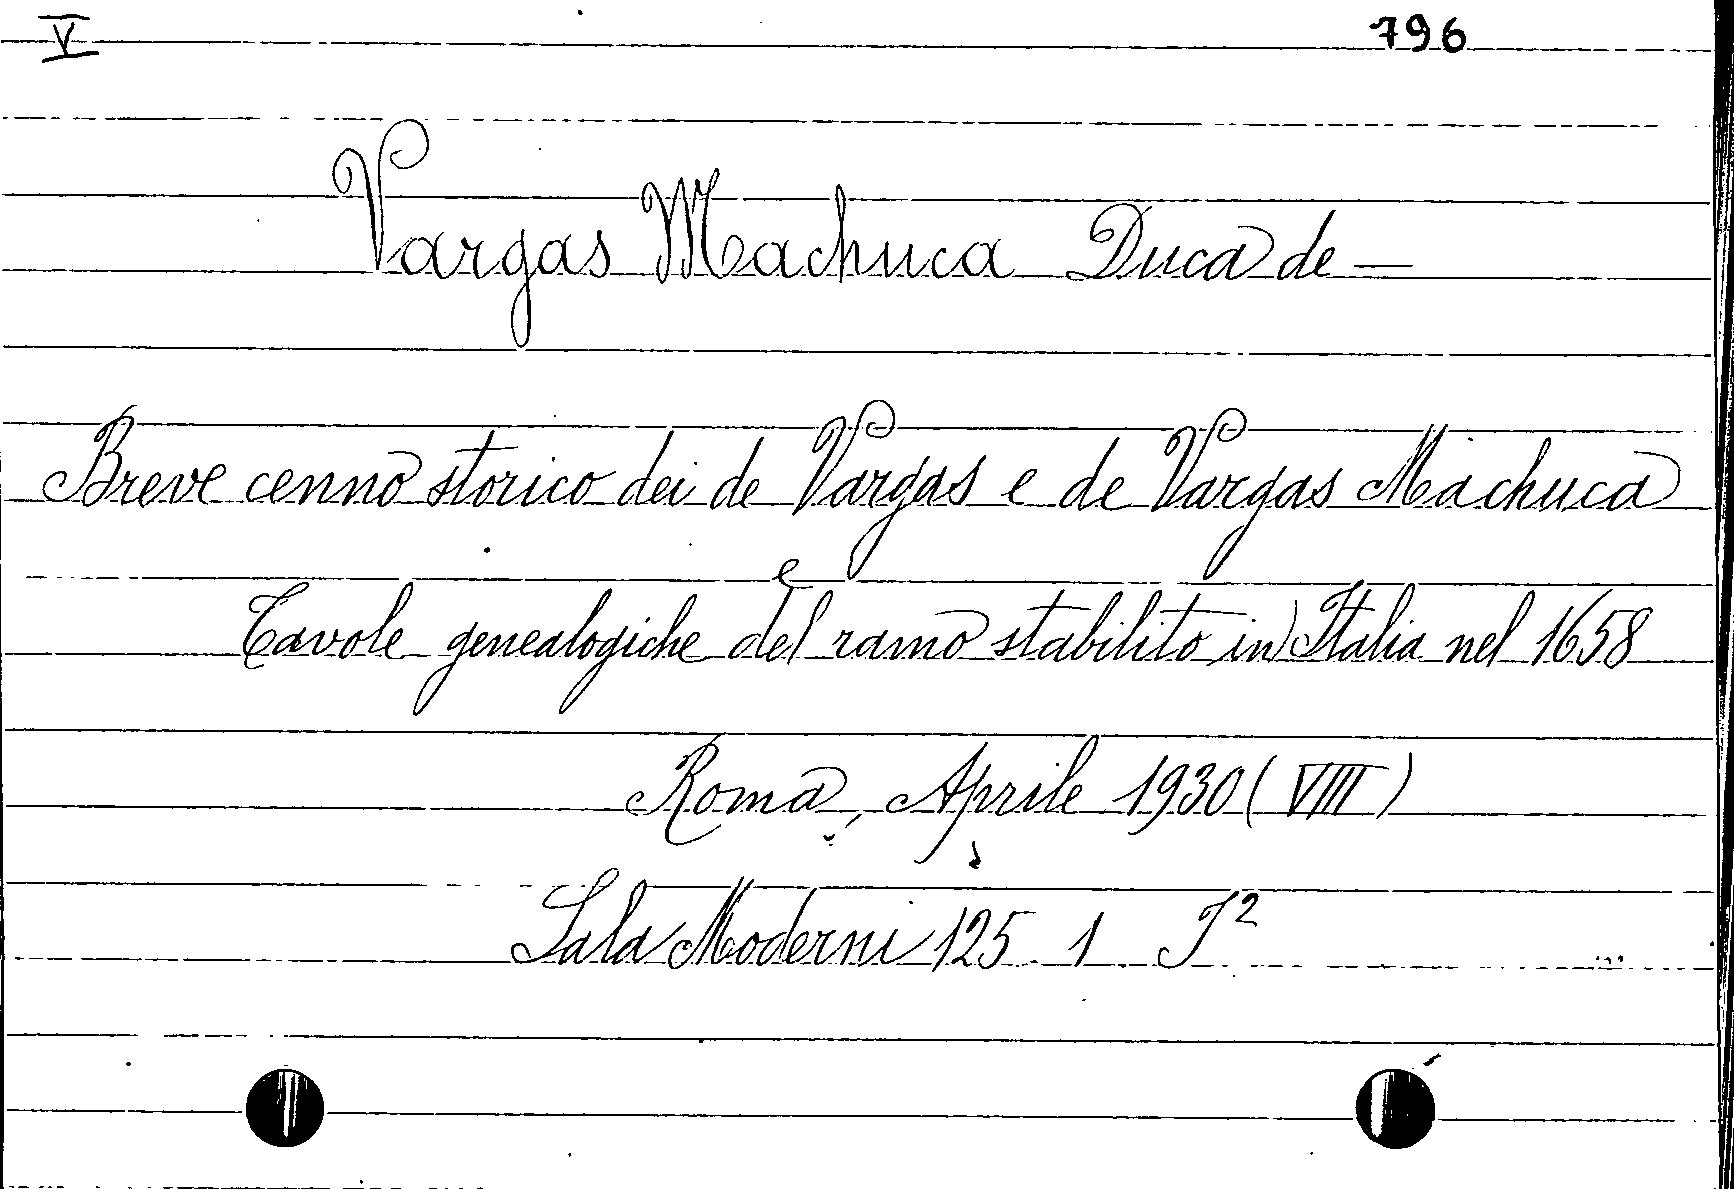 V 796
Vargas Machuca Duca de —
Breve cenno storico dei de Vargas e de Vargas Machuca
e
Tavole genealogiche del ramo stabilito in Italia nel 1658
Roma, Aprile 1930 (VIII)
Sala Moderni 125 1 J²